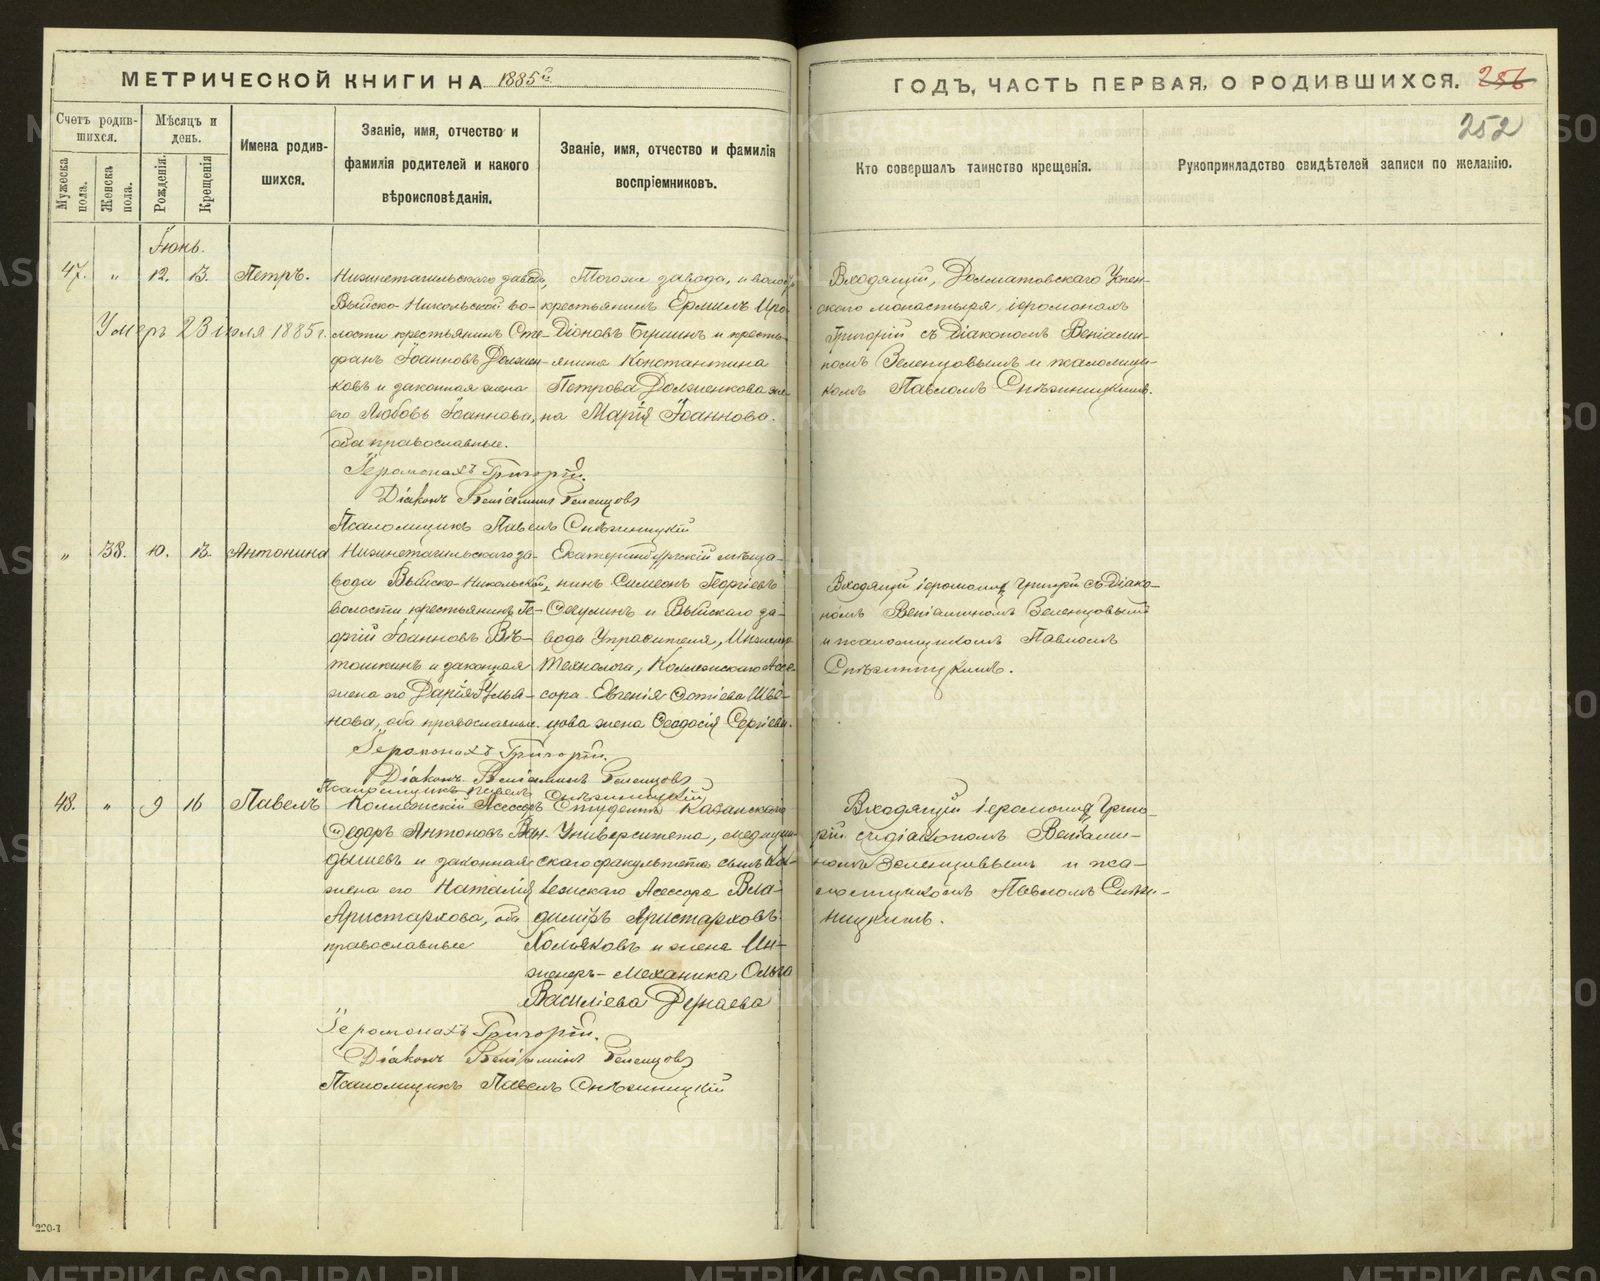 МЕТРИЧЕСКОЙ КНИГИ НА 1885й
ГОДЪ, ЧАСТЬ ПЕРВАЯ, О РОДИВШИХСЯ. 256
252
Счетъ родившихся.
Мужеска пола.
Женска пола.
Мѣсяцъ и день.
Рожденія.
Крещенія
Имена родившихся.
Званіе, имя, отчество и фамилія родителей и какого вѣроисповѣданія.
Званіе, имя, отчество и фамилія воспріемниковъ.
Кто совершалъ таинство крещенія.
Рукоприкладство свидѣтелей записи по желанію.
Іюнь.
47. " 12. 13. Петръ.
Умеръ 23 июля 1885 г.
Нижнетагильскаго завода,
Выйско-Никольской во-
лости крестьянинъ Сте-
фанъ Іоанновъ Должен-
ковъ и законная жена
его Любовь Іоаннова,
оба православные.
Тогоже завода, и волости
крестьянинъ Ермилъ
Бушинъ и кресть-
янина Константина
Петрова Долженкова же-
на Марія Іоаннова.
Входящій, Долматовскаго Успен-
скаго монастыря, іеромонахъ
Григорій съ Діакономъ Веніами-
номъ Зеленцовымъ и псаломщи-
комъ Павломъ Снѣжницкимъ.
Іеромонахъ Григорій.
Діаконъ Веніаминъ Зеленцовъ
Псаломщикъ Павелъ Снѣжницкій
" 38. 10. 13. Антонина
Нижнетагильскаго за-
вода Выйско-Никольской,
волости крестьянинъ Ге-
оргій Іоанновъ Вѣ-
тошкинъ и законная
жена его Дарія Улья-
нова, оба православные.
Екатеринбургскій мѣща-
нинъ Симеонъ Георгіевъ
и Выйскаго за-
вода Управителя, Инженеръ
Технолога, Коллежскаго Асе-
сора Евгенія Фотіева Шве-
цова жена Феодосія Сергіева.
Входящій іеромонахъ Григорій съ Діако-
номъ Веніаминомъ Зеленцовымъ
и псаломщикомъ Павломъ
Снѣжницкимъ.
Іеромонахъ Григорій.
Діаконъ Веніаминъ Зеленцовъ
Псаломщикъ Павелъ Снѣжницкій
48. " 9 16 Павелъ
Коллежскій Асессоръ
Федоръ Антоновъ Ван-
дышевъ и законная
жена его Наталія
Аристархова, оба
православные
Студентъ Казанскаго
Университета, медицин-
скаго факультета сынъ Кол-
лежскаго Асессора Вла-
димиръ Аристарховъ
Хомяковъ и жена Ин-
женеръ-Механика Ольга
Василіева Дунаева
Входящій іеромонахъ Григо-
рій съ діакономъ Веніами-
номъ Зеленцовымъ и пса-
ломщикомъ Павломъ Снѣж-
ницкимъ.
Іеромонахъ Григорій.
Діаконъ Веніаминъ Зеленцовъ
Псаломщикъ Павелъ Снѣжницкій
220-1
METRIKI.GASO-URAL.RU